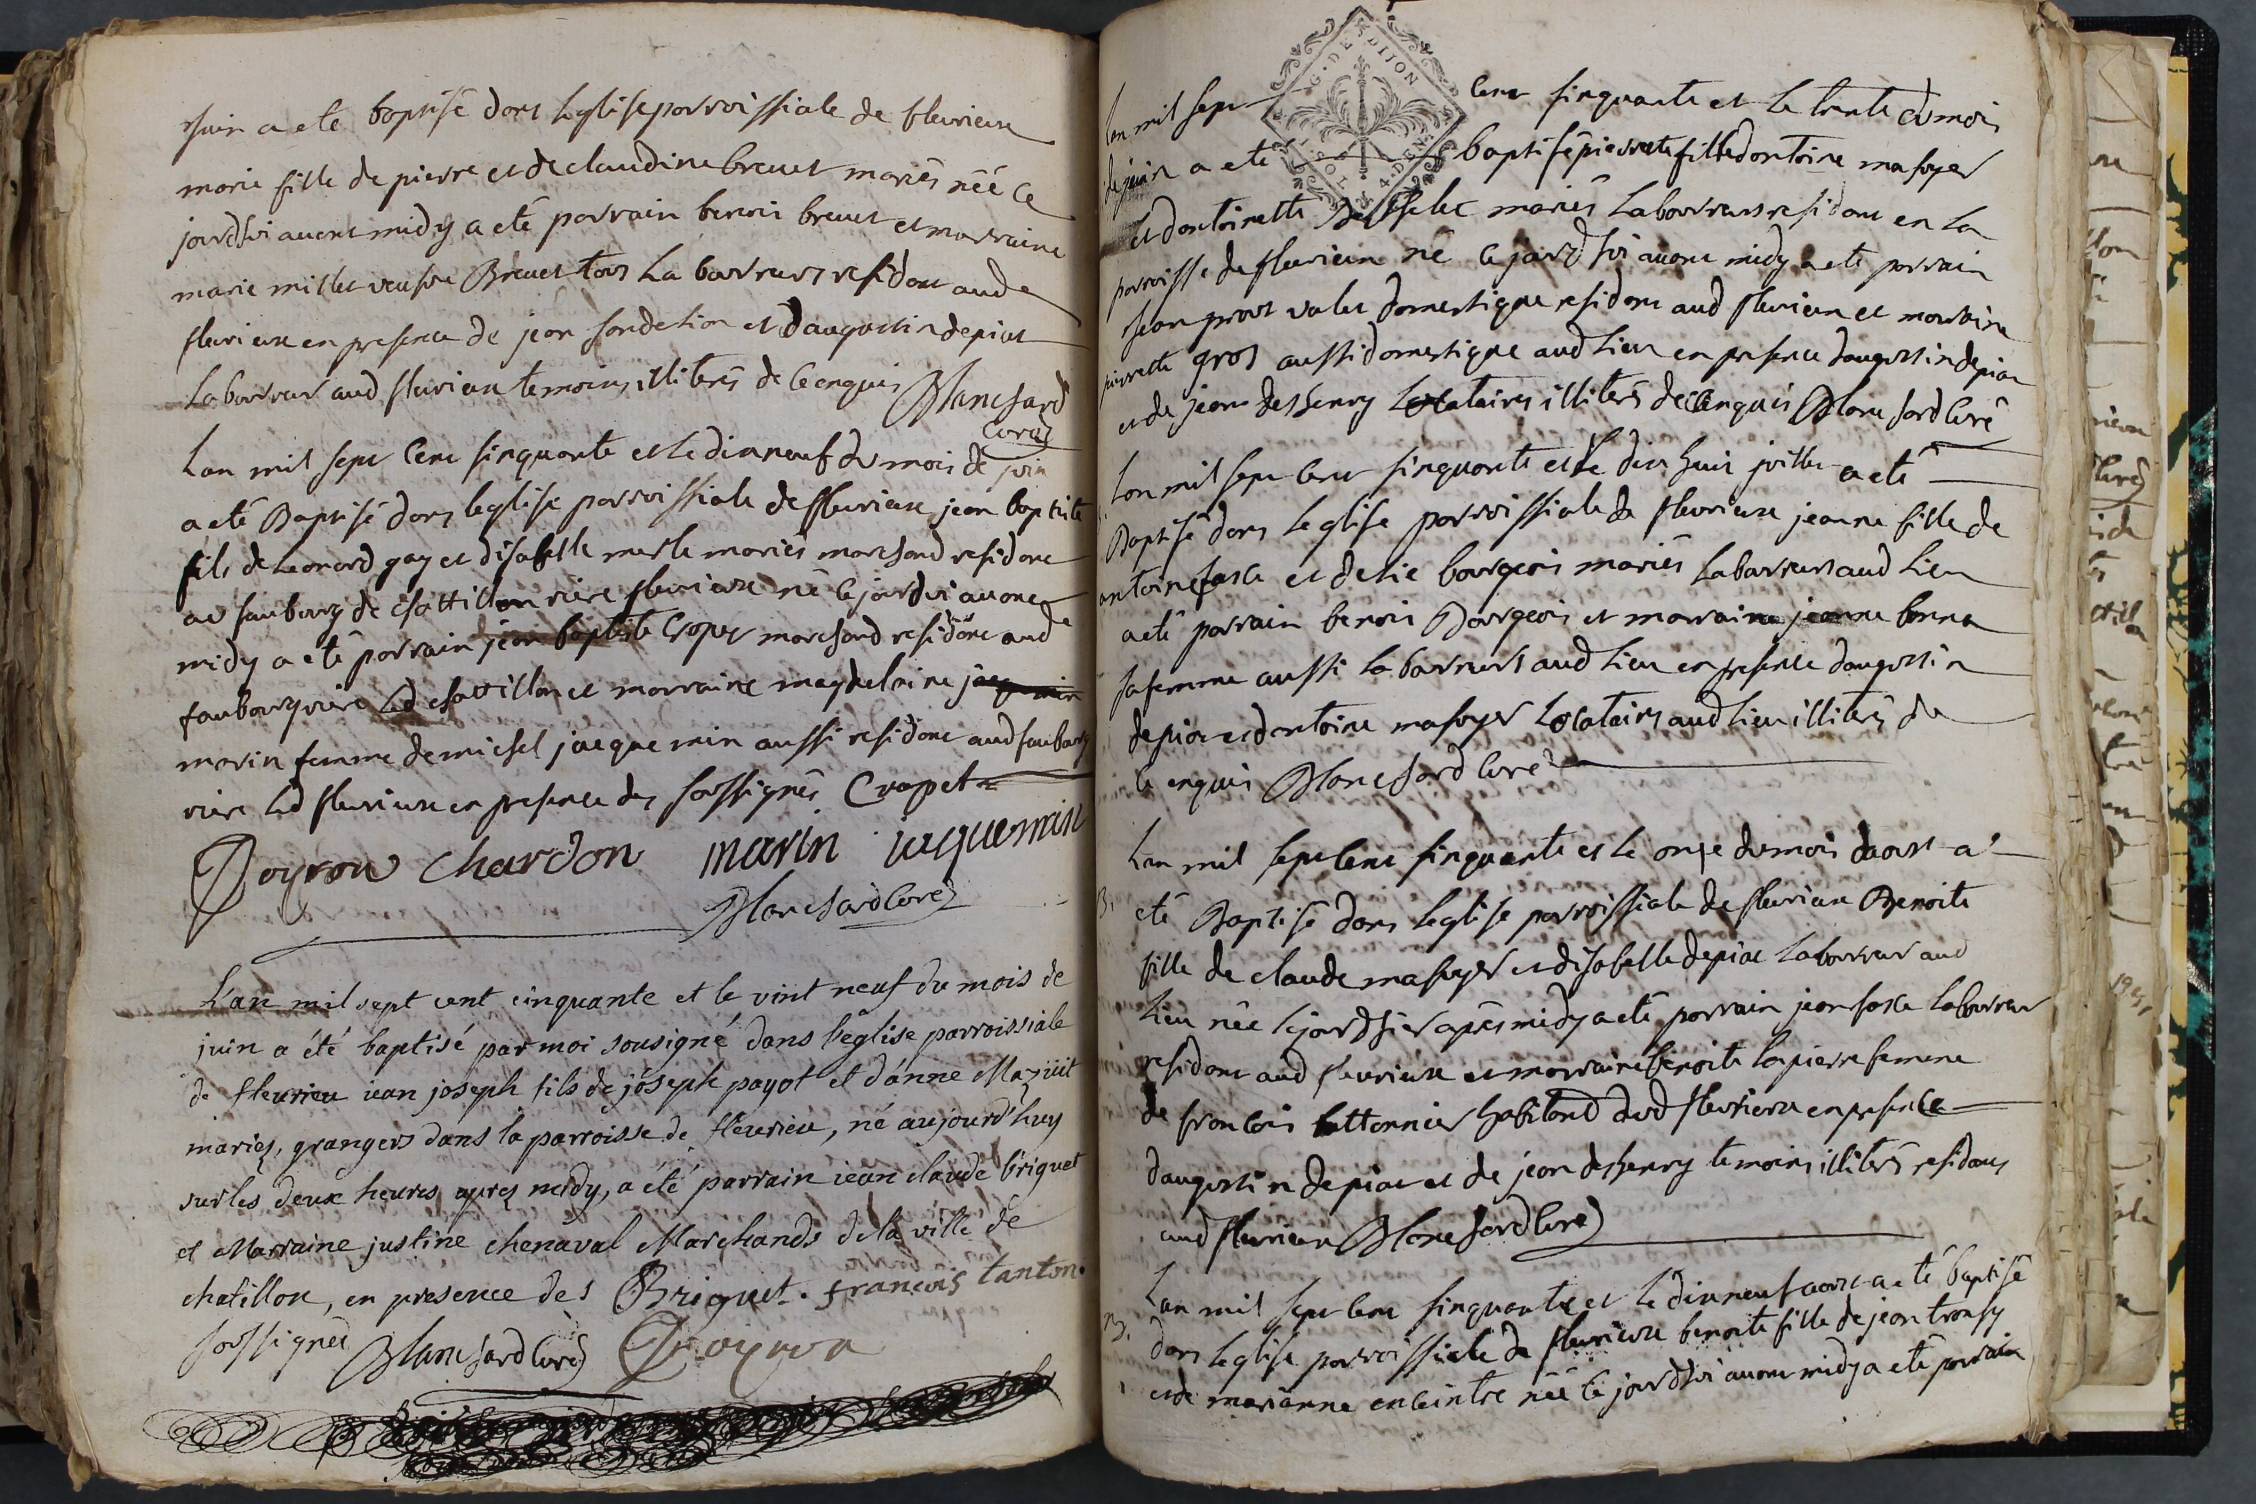 juin a eté baptisé dans leglise parroissiale de fleurieux
marie fille de pierre et de claudine brevet mariés néé ce
jourdhui avant midy a eté parrain benoit brevet et marraine
marie millet veufve Brevet tous laboureurs residant aud
fleurieux en presence de jean fondetion et daugustin depiat
laboureur aud fleurieux temoins illiterés de ce enquis Blanchard
curé
Lan mil sept cent sinquante et le dixneuf du mois de juin
a eté Baptisé dans leglise parroissiale de fleurieux jean baptiste
fils de Leonard gay et disabelle merle mariés marchand residant
au faubourg de chattillon riere fleurieux né ce jourdui avant
midy a eté parrain jean baptiste Cropet marchand residant aud
faubourg riere led chattillon et marraine magdelaine jacquemin
marin femme de michel jacquemin aussi residant aud faubourg
riere led fleurieux en presence des soussignés Cropet
Poyron chardon marin jacquemin
Blanchard curé
L'an mil sept cent cinquante et le vint neuf du mois de
juin a été baptisé par moi sousigné dans l'église parroissiale
de fleurieu iean joseph fils de joseph payot et d'anne Mazuit
mariez, grangers dans la parroisse de fleurieu, né aujourd'huy
sur les deux heures aprez midy, a été parrain iean claude briquet
et Marraine justine chenaval Marchands de la ville de
chatillon, en presence des Briquet. francois tanton.
soussignés Blanchard curé Poyron
Lan mil sept cent sinquante et le trente du mois
G. DE DIJON
SOL 4. DEN
de juin a eté baptisé pierrette fille dantoine masoyer
et dantoinette mariés laboureurs residant en la
parroisse de fleurieux né ce jourdhui avant midy a eté parrain
jean prost valet domestique residant aud fleurieux et marraine
pierrette gros aussi domestique aud lieu en presence daugustin depiat
et de jean deshenry Locataires illiterés de ce enquis Blanchard curé
Lan mil sept cent sinquante et le dix huit juillet a eté
Baptisé dans leglise parroissiale de fleurieux jeanne fille de
antoine et de bourgeois mariés laboureurs aud lieu
a eté parrain benoit Bourgeois et marraine jeanne bonna
sa femme aussi laboureurs aud lieu en presence daugustin
depiat et dantoine masoyer Locataires aud lieu illiterés de
ce enquis Blanchard curé
Lan mil sept cent sinquante et le onze du mois daoust a
B.
eté Baptisé dans leglise parroissiale de fleurieux Benoite
fille de claude masoyer et disabelle depiat laboureur aud
lieu née le jourdhier apès midy a eté parrain jean laboureur
residant aud fleurieux et marraine benoite lapierre femme
de francois buttonnier habitant dud fleurieux en presence
daugustin depiat et de jean deshenry temoins illiterés residans
aud fleurieux Blanchard curé
Lan mil sept cent sinquante et le dixneuf aoust a eté baptisé
B.
dans leglise parroissiale de fleurieux benoite fille de jean tronsy
et de marianne enceintre néé ce jourdhui avant midy a eté parrain